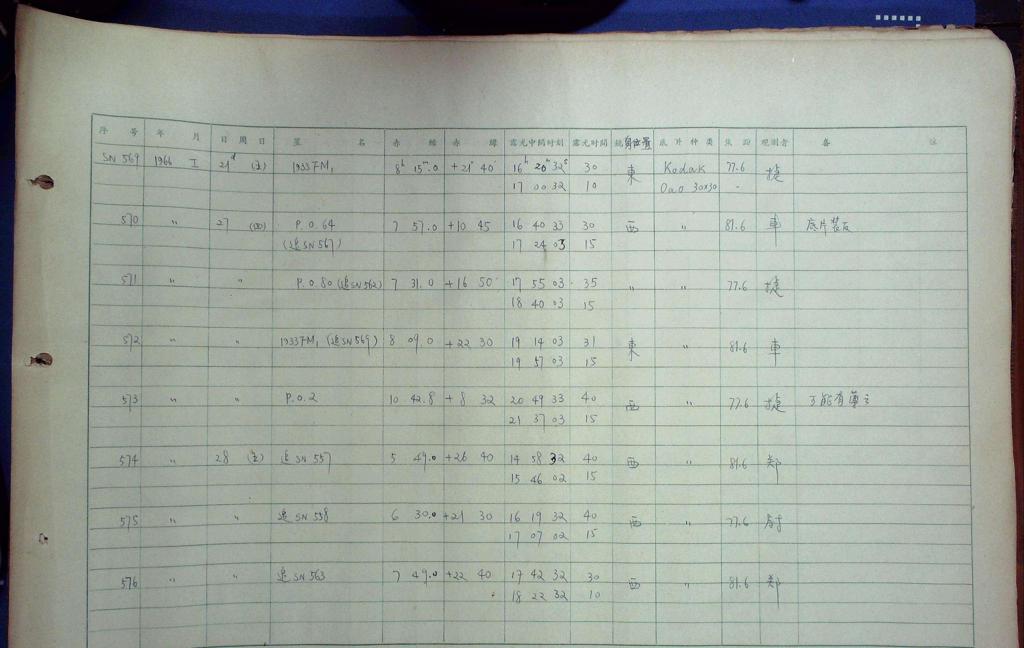 序 号 年 月 日 周 日 星 名 赤 经 赤 纬 露光中间时刻 露光时间 镜筒位置 底片种类 焦距 观测者 备 注
SN 569 1966 I 21d 1933FM1 8h 15m.0 +21° 40' 16h 20m 32s 30 東 Kodak 77.6 捷
17 00 32 10 Oao 30x30 -
570 〃 27 P.O.64 7 57.0 +10 45 16 40 33 30 西 〃 81.6 車 底片装反
(追SN567) 17 24 03 15
571 〃 〃 P.O.80 (追SN562) 7 31.0 +16 50 17 55 03 35 〃 〃 77.6 捷
18 40 03 15
572 〃 〃 1933FM1 (追SN569) 8 09.0 +22 30 19 14 03 31 東 〃 81.6 車
19 57 03 15
573 〃 〃 P.O.2 10 42.8 +8 32 20 49 33 40 西 〃 77.6 捷 可能有
21 37 03 15
574 〃 28 追 SN 557 5 49.0 +26 40 14 58 32 40 西 〃 81.6 郑
15 46 02 15
575 〃 〃 追 SN 558 6 30.0 +21 30 16 19 32 40 西 〃 77.6
17 07 02 15
576 〃 〃 追 SN 563 7 49.0 +22 40 17 42 32 30 西 〃 81.6 郑
18 22 32 10